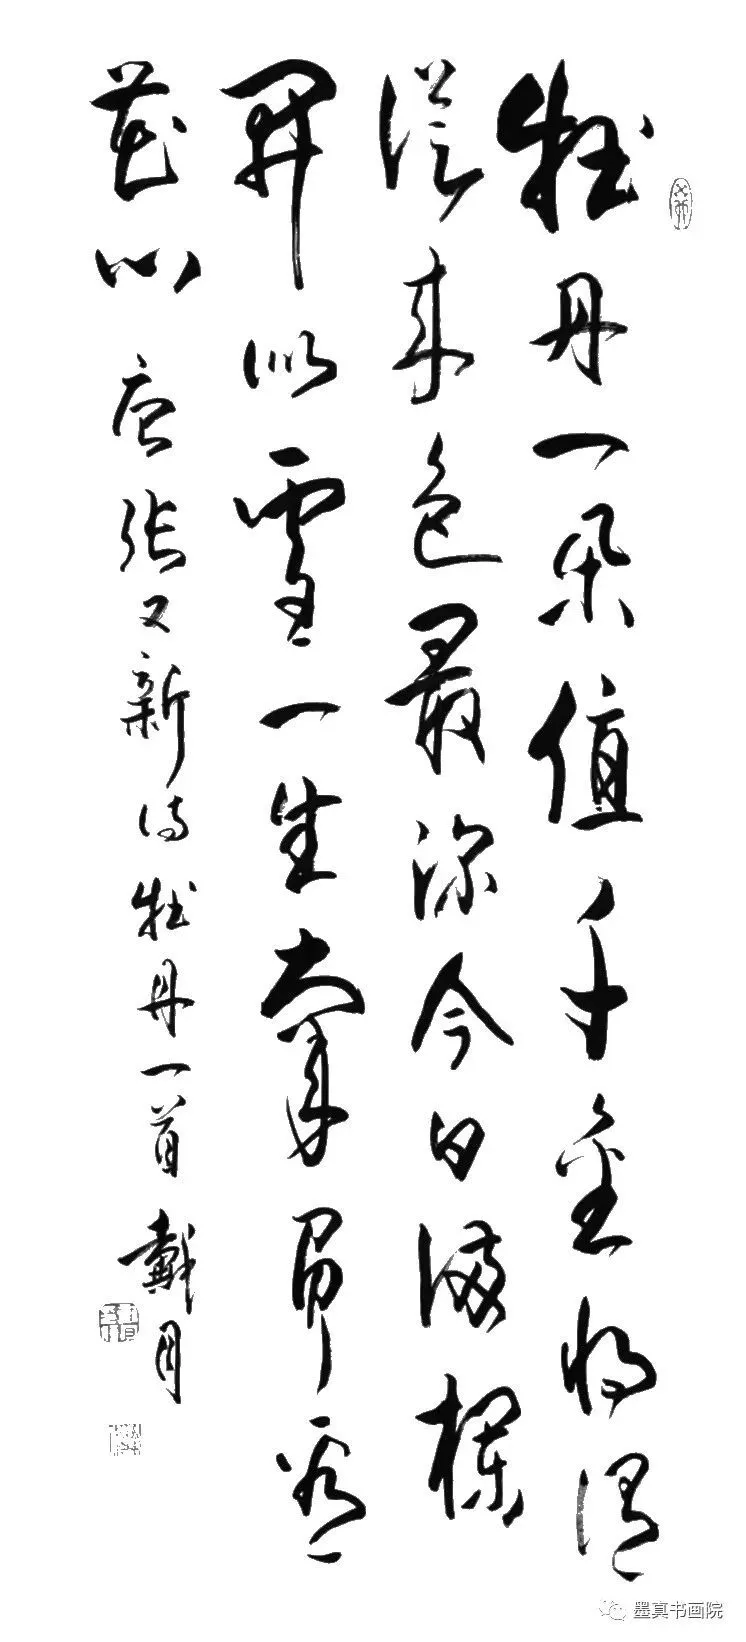 牡丹一朵值千金将谓
従来色最深今日満欄
開似雪一生辜負看
花心 唐张又新诗牡丹一首 戴月
墨真书画院